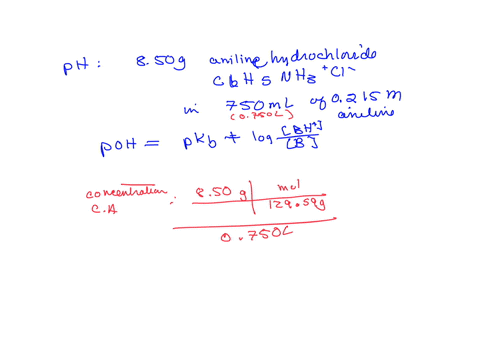 pH: 8.50g aniline hydrochloride
C6H5NH3+Cl-
in 750mL of 0.215 m
(0.750L) aniline
pOH = pKb + log [BH+]/[B]
concentration C.A : 8.50 g | mol
129.59g
0.750L